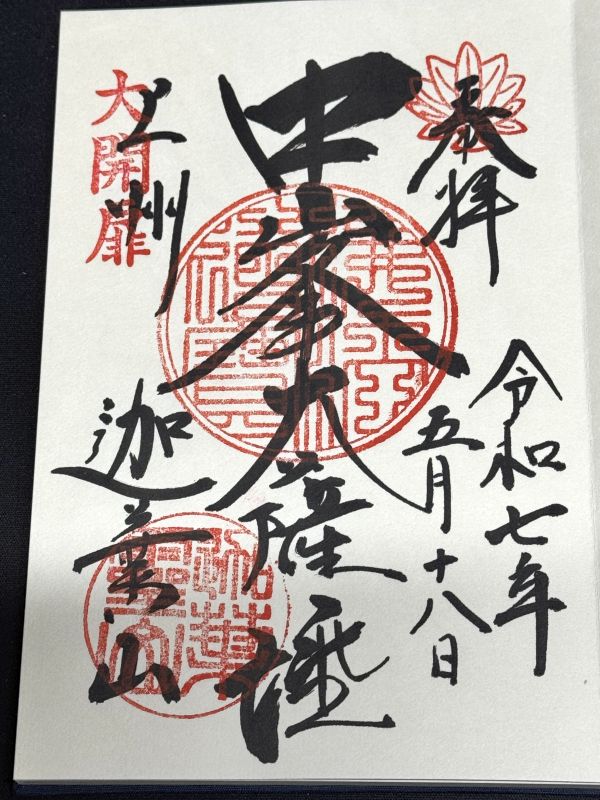 奉拝
令和七年
五月十八日
中峯大薩埵
上州
大開扉
迦葉山